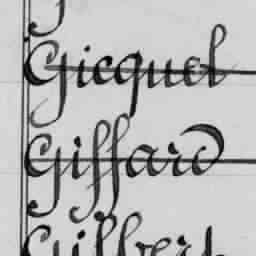 Gicquel
Giffard
Gilbert